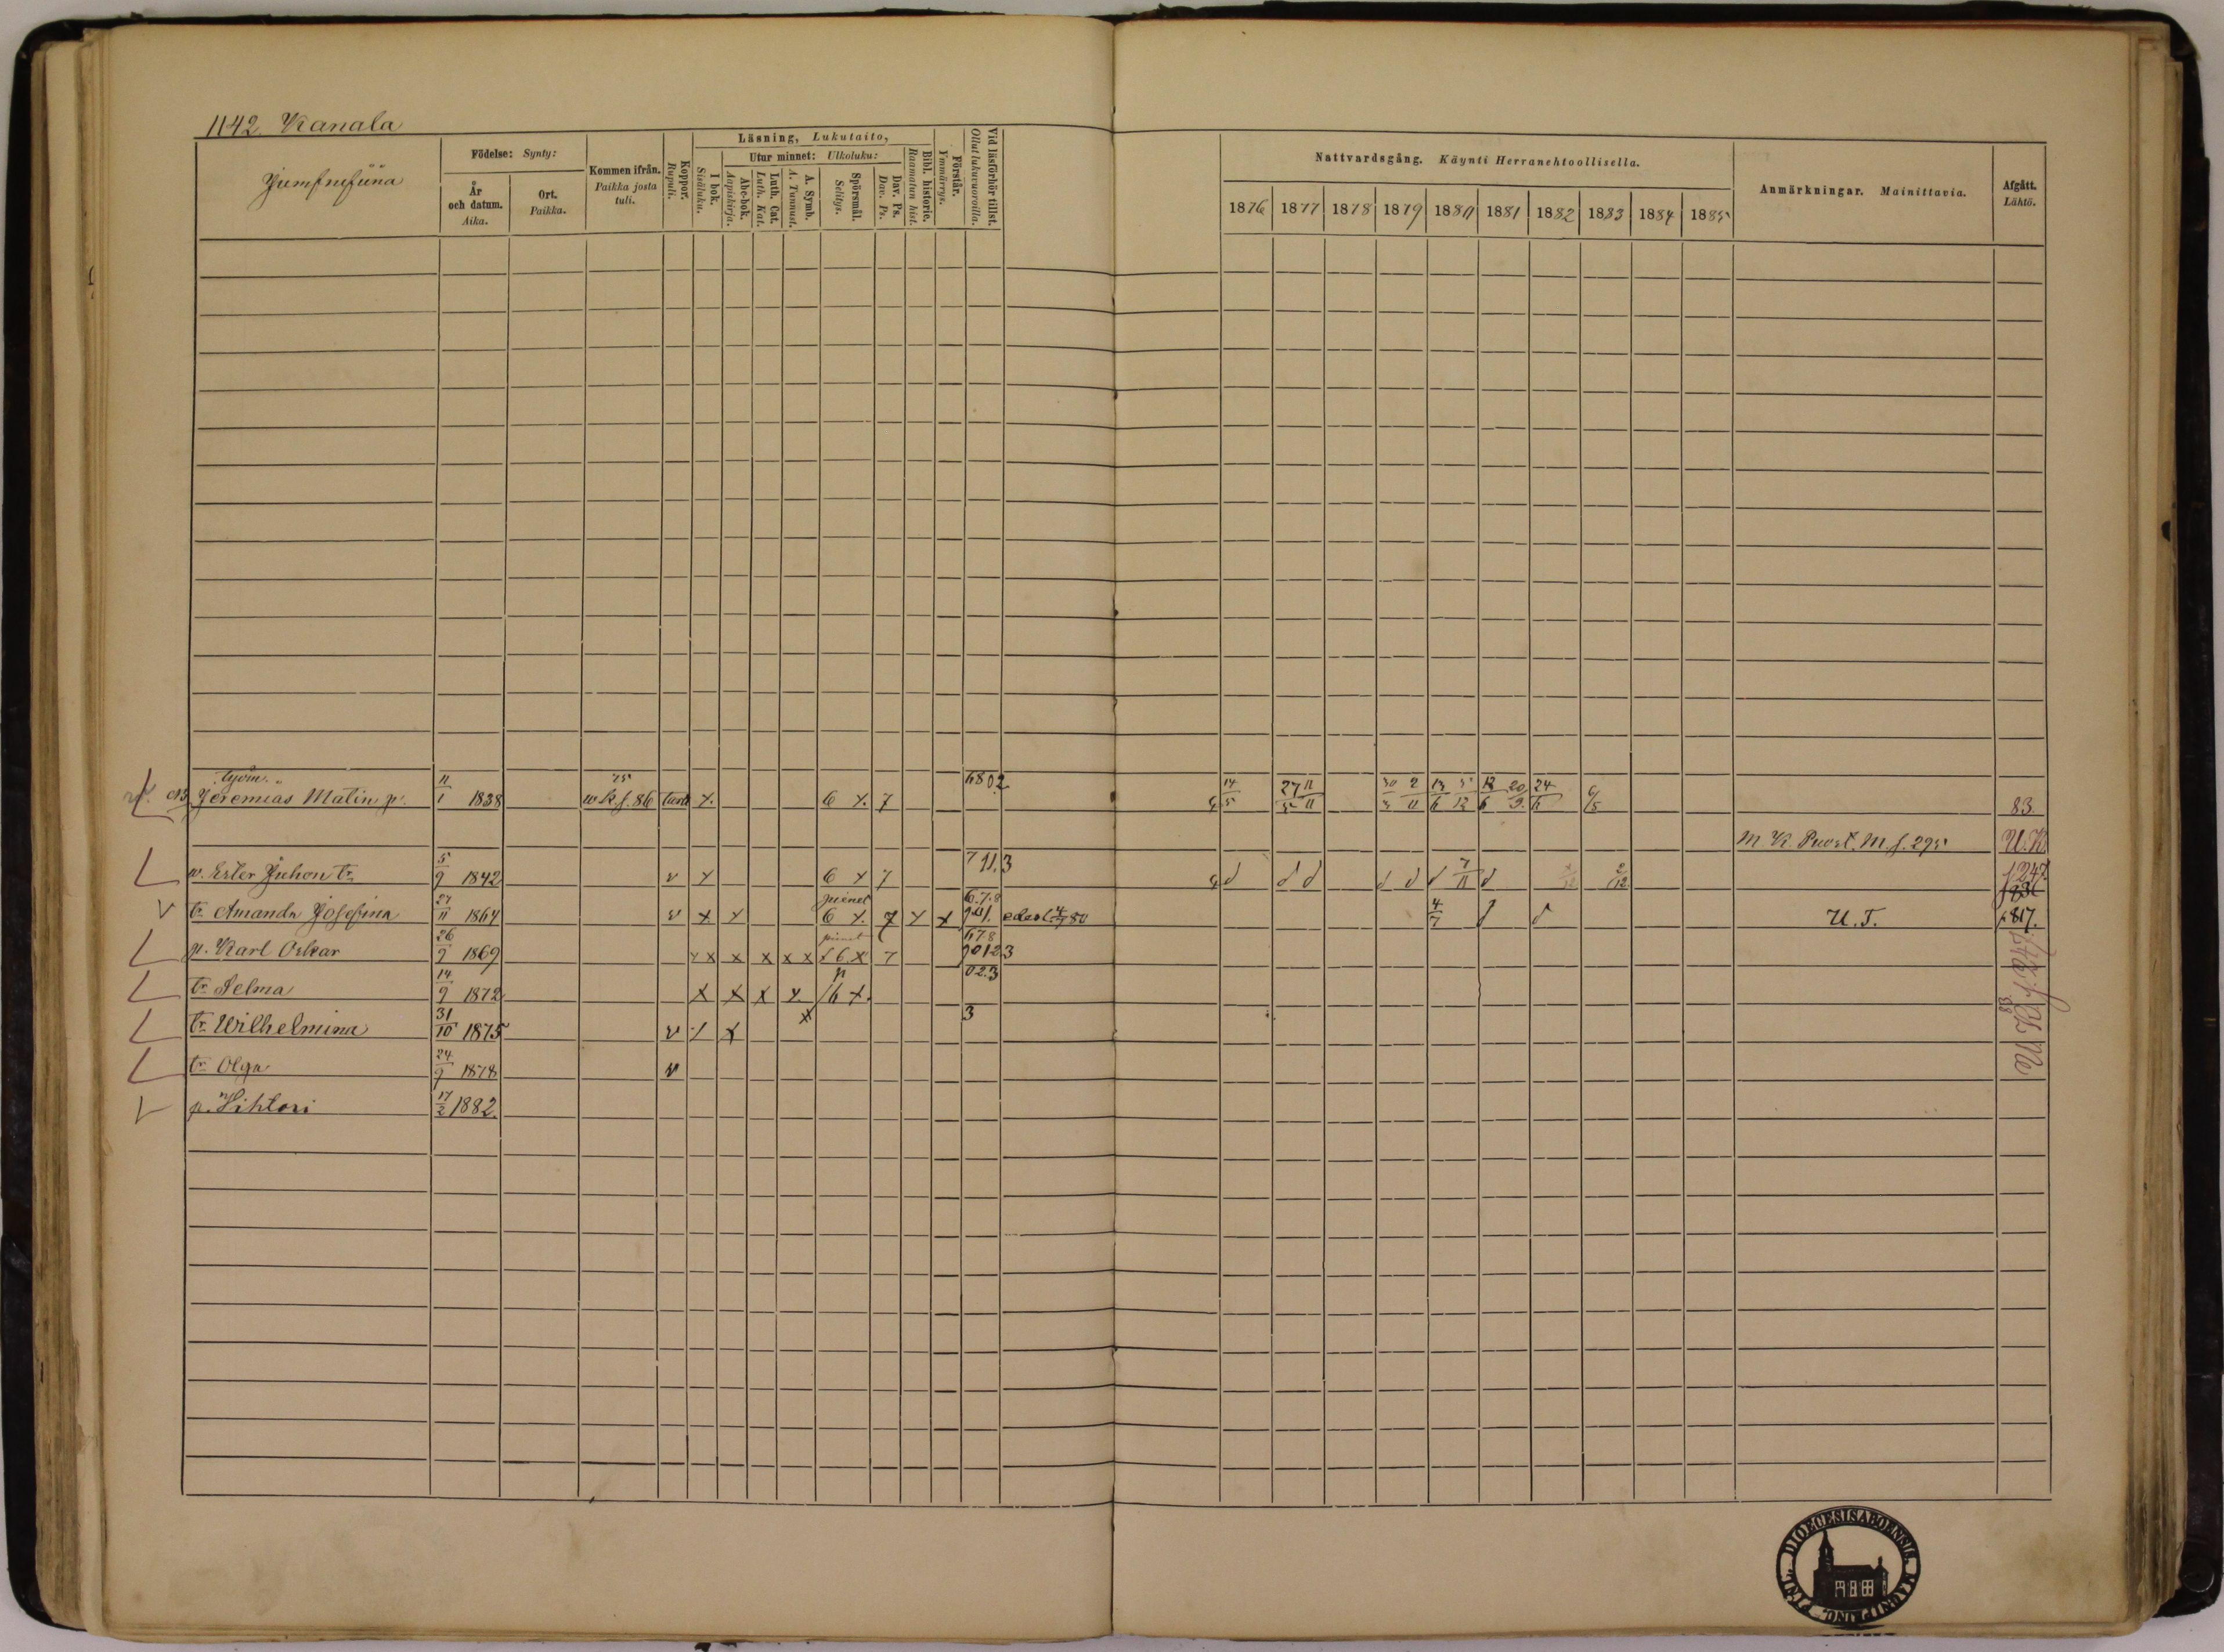 1142. Kanala
Födelse: Synty:
Läsning, Lukutaito,
Utur minnet: Ulkoluku:
År och datum. Aika.
Ort. Paikka.
Kommen ifrån. Paikka josta tuli.
Koppor. Rupuli.
I bok. Sisäluku.
Abc-bok. Aapiskirja.
Luth. Cat. Luth. Kat.
A. Symb. A. Tunnust.
Spörsmål. Selitys.
Dav. Ps. Dav. Ps.
Bibl. historie. Raamatun hist.
Förstår. Ymmärrys.
Vid läsförhör tillst. Ollut lukuvuoroilla.
Nattvardsgång. Käynti Herranehtoollisella.
1876 1877 1878 1879 1880 1881 1882 1883 1884 1885
Anmärkningar. Mainittavia.
Afgått. Lähtö.
työm. 75 6802
Jeremias Matin p. 11/1 1838 w k f. 86 6 x. 7 14/5 27/5 11/11 30/3 2/11 13/6 5/12 12/6 20/9 24/6 6/5 83
M K. Puost. M. f. 295 U.K.
w. Ester Juhon tr. 5/9 1842 v x 6 x 7 7 11.3 7/11 2/12 f 247.
tr. Amanda Josefina 27/11 1864 v x x pienet 6 x. 7 x x 6.7.8 4/7 80 4/7 U.T. 817.
p. Karl Oskar 26/9 1869 x x x x x x 6 x 7 678 90123
tr. Selma 14/9 1872 x x x x. p 6 x. 023
tr. Wilhelmina 31/10 1875 v x x 3
tr. Olga 24/9 1878 v
p. Wihtori 17/2 1882.
U.K. f. 247.
DIOECESIS ABOENSIS